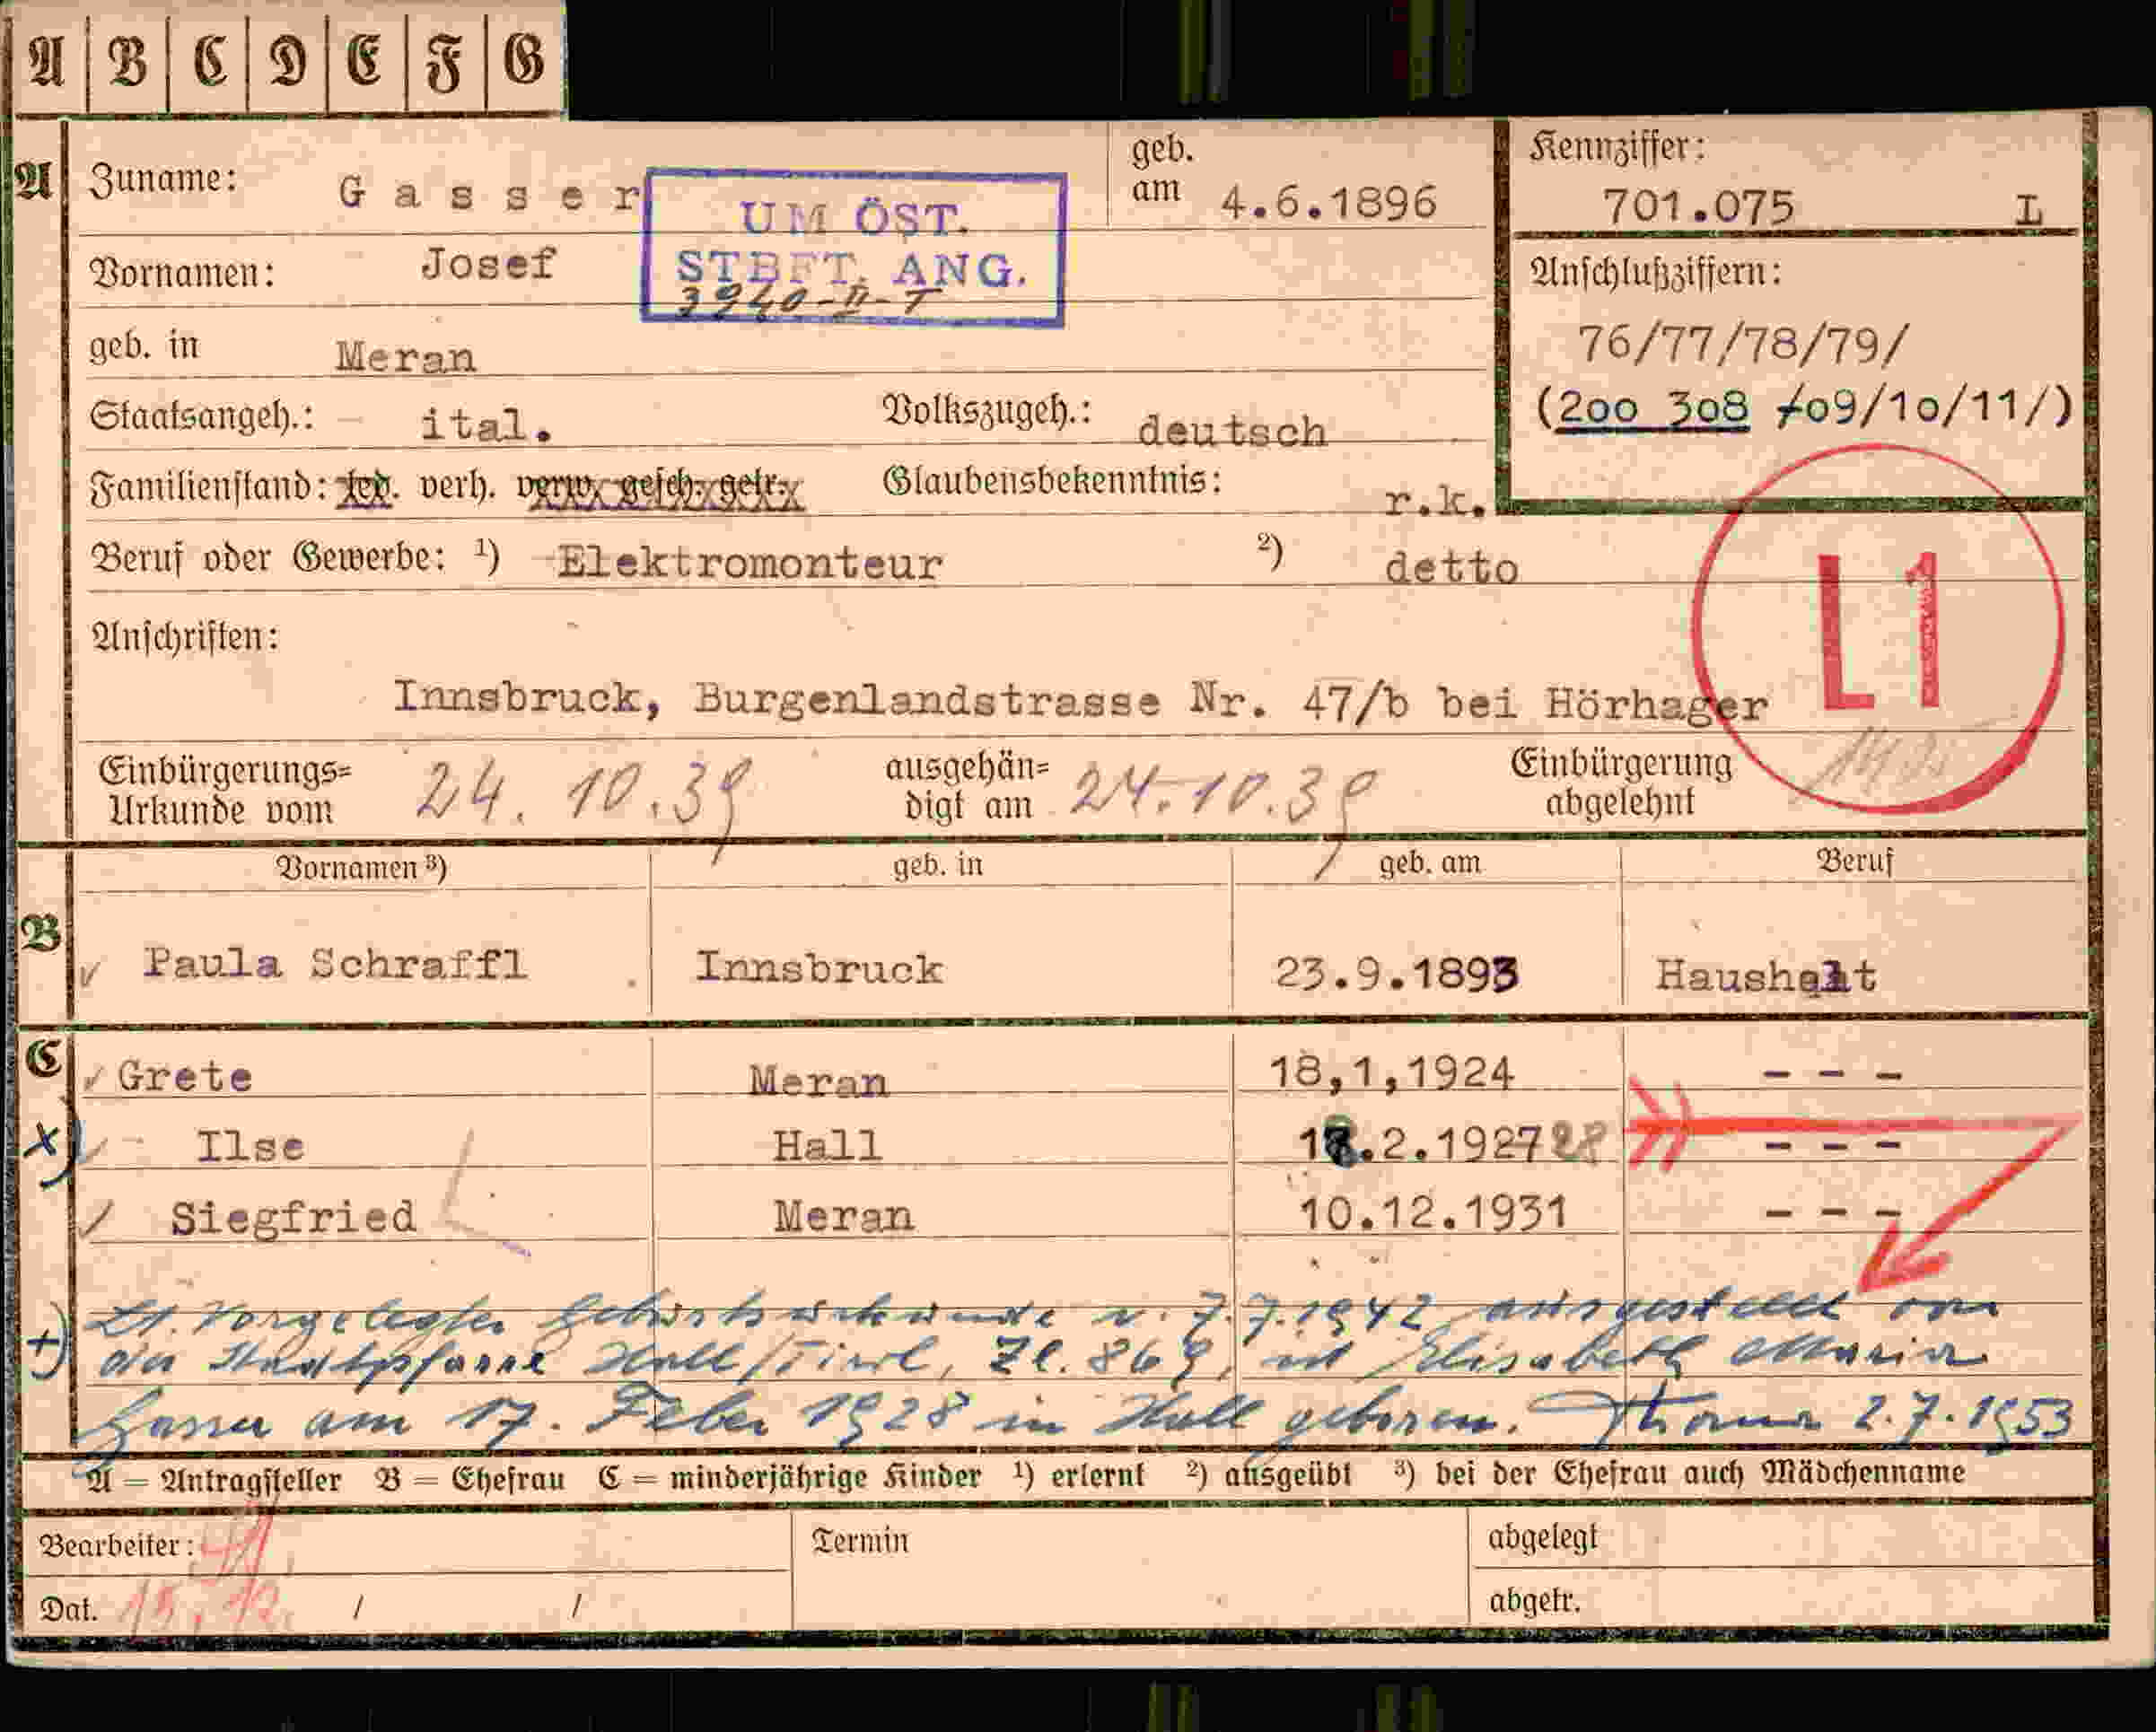 A B C D E F G
A Zuname: Gasser geb. am 4.6.1896
UM ÖST.
STBFT. ANG.
3940-II-T
Kennziffer:
701.075 L
Vornamen: Josef
Anschlußziffern:
76/77/78/79/
(200 308 /09/10/11/)
geb. in Meran
Staatsangeh.: ital. Volkszugeh.: deutsch
Familienstand: led. verh. verw. gesch. getr. Glaubensbekenntnis: r.k.
Beruf oder Gewerbe: ¹) Elektromonteur ²) detto
L1
Anschriften:
Innsbruck, Burgenlandstrasse Nr. 47/b bei Hörhager
Einbürgerungs= Urkunde vom 24.10.39 ausgehän= digt am 24.10.39 Einbürgerung abgelehnt
Vornamen ³) geb. in geb. am Beruf
B Paula Schraffl Innsbruck 23.9.1893 Haushalt
C Grete Meran 18,1,1924 - - -
x) Ilse Hall 17.2.1927 28 - - -
Siegfried Meran 10.12.1931 - - -
+) Lt. vorgelegter Geburtsurkunde v. 7.7.1942, ausgestellt von
der Stadtpfarre Hall/Tirol, Zl. 869, ist Elisabeth Maria
Gasser am 17. Feber 1928 in Hall geboren. 2.7.1953
A = Antragsteller B = Ehefrau C = minderjährige Kinder ¹) erlernt ²) ausgeübt ³) bei der Ehefrau auch Mädchenname
Bearbeiter: Termin abgelegt
Dat. 15.12. / / abgetr.